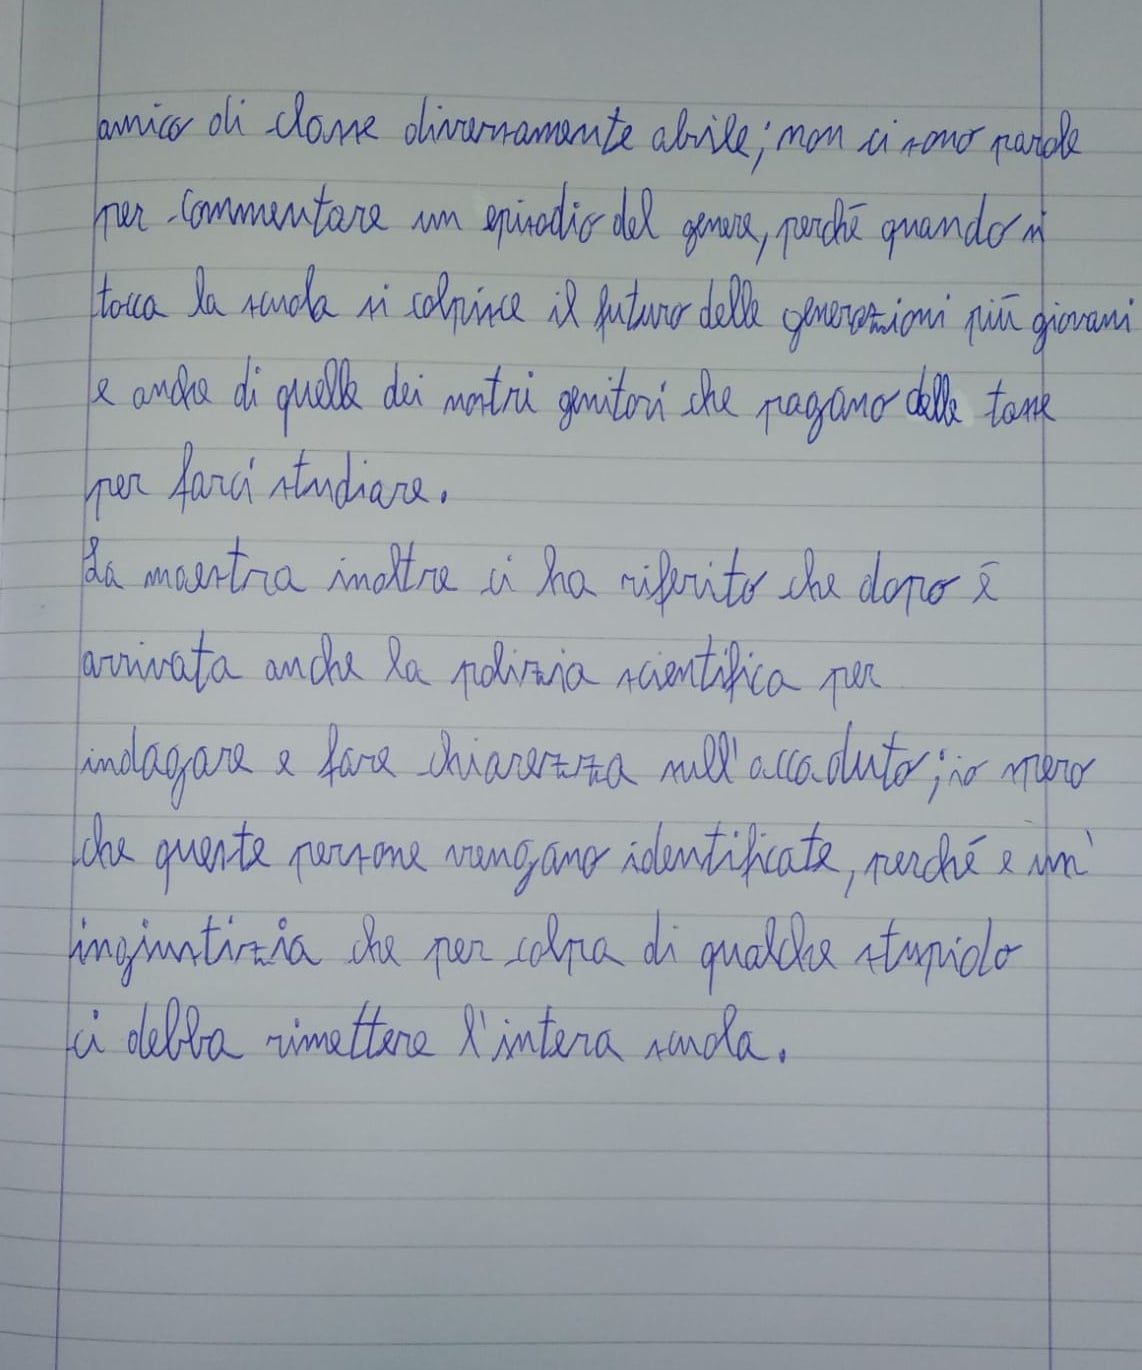 amico di classe diversamente abile; non ci sono parole
per commentare un episodio del genere, perché quando si
tocca la scuola si colpisce il futuro delle generazioni più giovani
e anche di quelle dei nostri genitori che pagano delle tasse
per farci studiare.
La maestra inoltre ci ha riferito che dopo è
arrivata anche la polizia scientifica per
indagare e fare chiarezza sull'accaduto; io spero
che queste persone vengano identificate, perché e un'
ingiustizia che per colpa di qualche stupido
ci debba rimettere l'intera scuola.